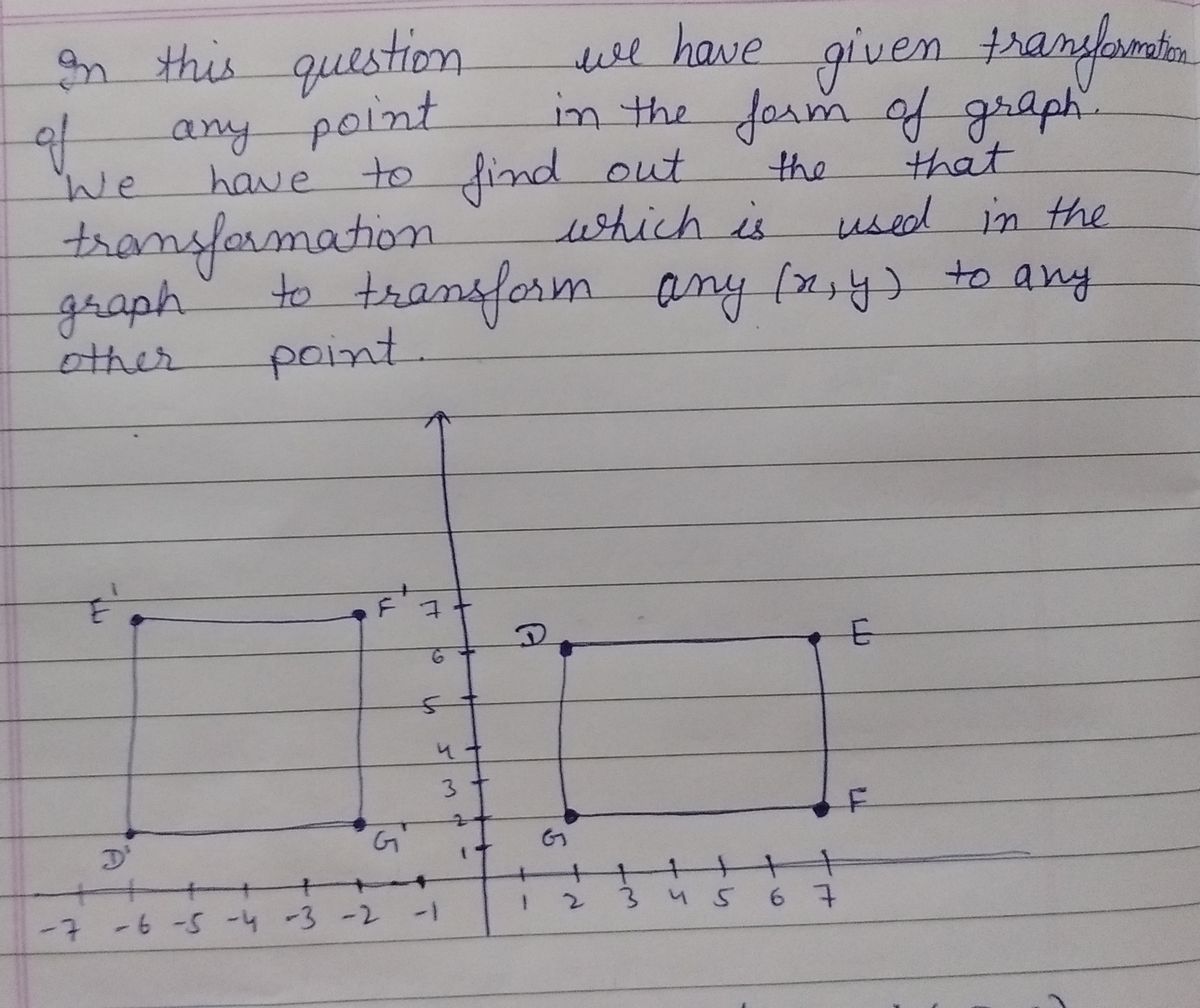 In this question we have given transformation
of any point in the form of graph.
We have to find out the that
transformation which is used in the
graph to transform any (x,y) to any
other point.
E' F' 7 D E
6
5
4
3
2 G F
D' G' 1
-7 -6 -5 -4 -3 -2 -1 1 2 3 4 5 6 7